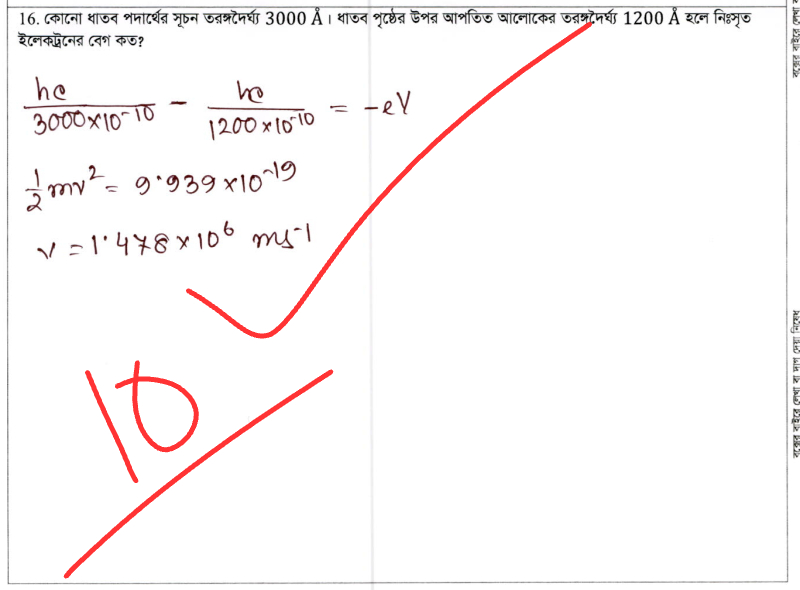 16. কোনো ধাতব পদার্থের সূচন তরঙ্গদৈর্ঘ্য 3000 Å। ধাতব পৃষ্ঠের উপর আপতিত আলোকের তরঙ্গদৈর্ঘ্য 1200 Å হলে নিঃসৃত
ইলেকট্রনের বেগ কত?
hc/3000×10^-10 − hc/1200×10^-10 = −eV
1/2 mv² = 9.939×10^-19
v = 1.478×10^6 ms^-1
10
বক্সের বাইরে লেখা বা দাগ দেয়া নিষেধ